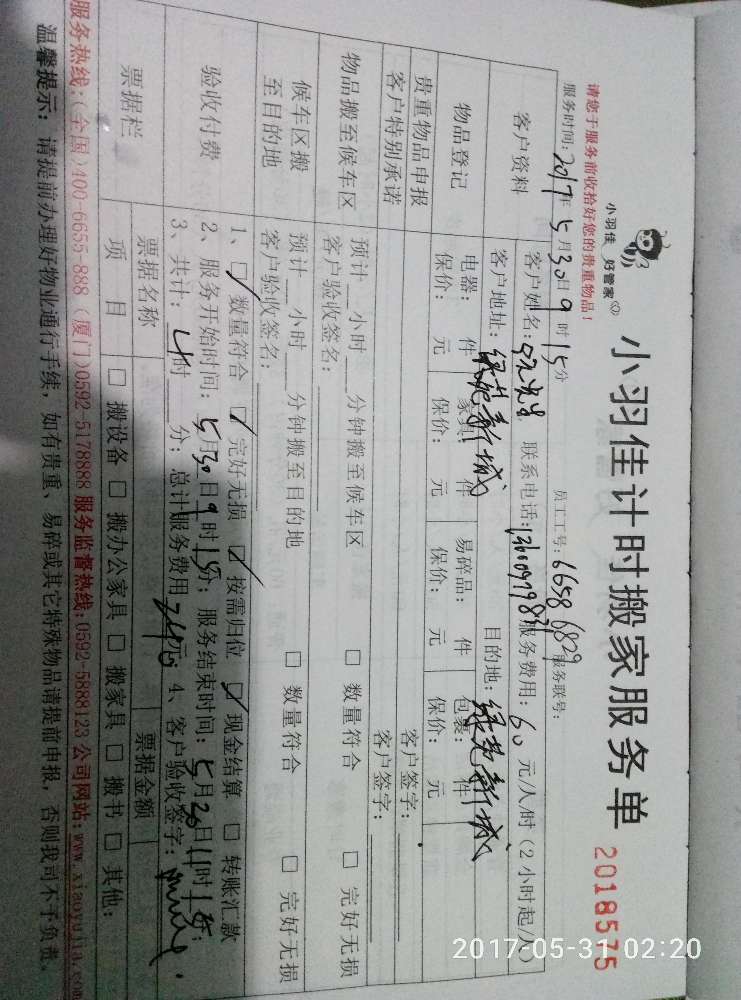 小羽佳 好管家
小羽佳计时搬家服务单 2018515
请您于服务前收拾好您的贵重物品!
服务时间: 2017年5月30日9时15分 员工工号: 6658 6829 服务联号:
客户资料 客户姓名: 先生 联系电话: 服务费用: 60 元/人/时(2小时起/人)
客户地址: 绿苑新城 目的地: 绿苑新城
物品登记 电器: 件 家具: 件 易碎品: 件 包裹: 件
保价: 元 保价: 元 保价: 元 保价: 元
贵重物品申报 客户签字:
客户特别承诺 客户签字:
物品搬至候车区 预计 小时 分钟搬至候车区 □ 数量符合 □ 完好无损
客户验收签名:
候车区搬至目的地 预计 小时 分钟搬至目的地 □ 数量符合 □ 完好无损
客户验收签名:
验收付费 1、☑ 数量符合 ☑ 完好无损 ☑ 按需归位 ☑ 现金结算 □ 转账汇款
2、服务开始时间: 5月30日9时15分; 服务结束时间: 5月30日11时15分;
3、共计: 4时 分; 总计服务费用 240元 4、客户验收签字:
票据栏 票据名称 票据金额
项目 □ 搬设备 □ 搬办公家具 □ 搬家具 □ 搬书 □ 其他:
服务热线:(全国)400-6655-888 (厦门)0592-5178888 服务监督热线:0592-5888123 公司网站:www.xiaoyujia.com
温馨提示: 请提前办理好物业通行手续, 如有贵重、易碎或其它特殊物品请提前申报, 否则我司不予负责。
2017-05-31 02:20